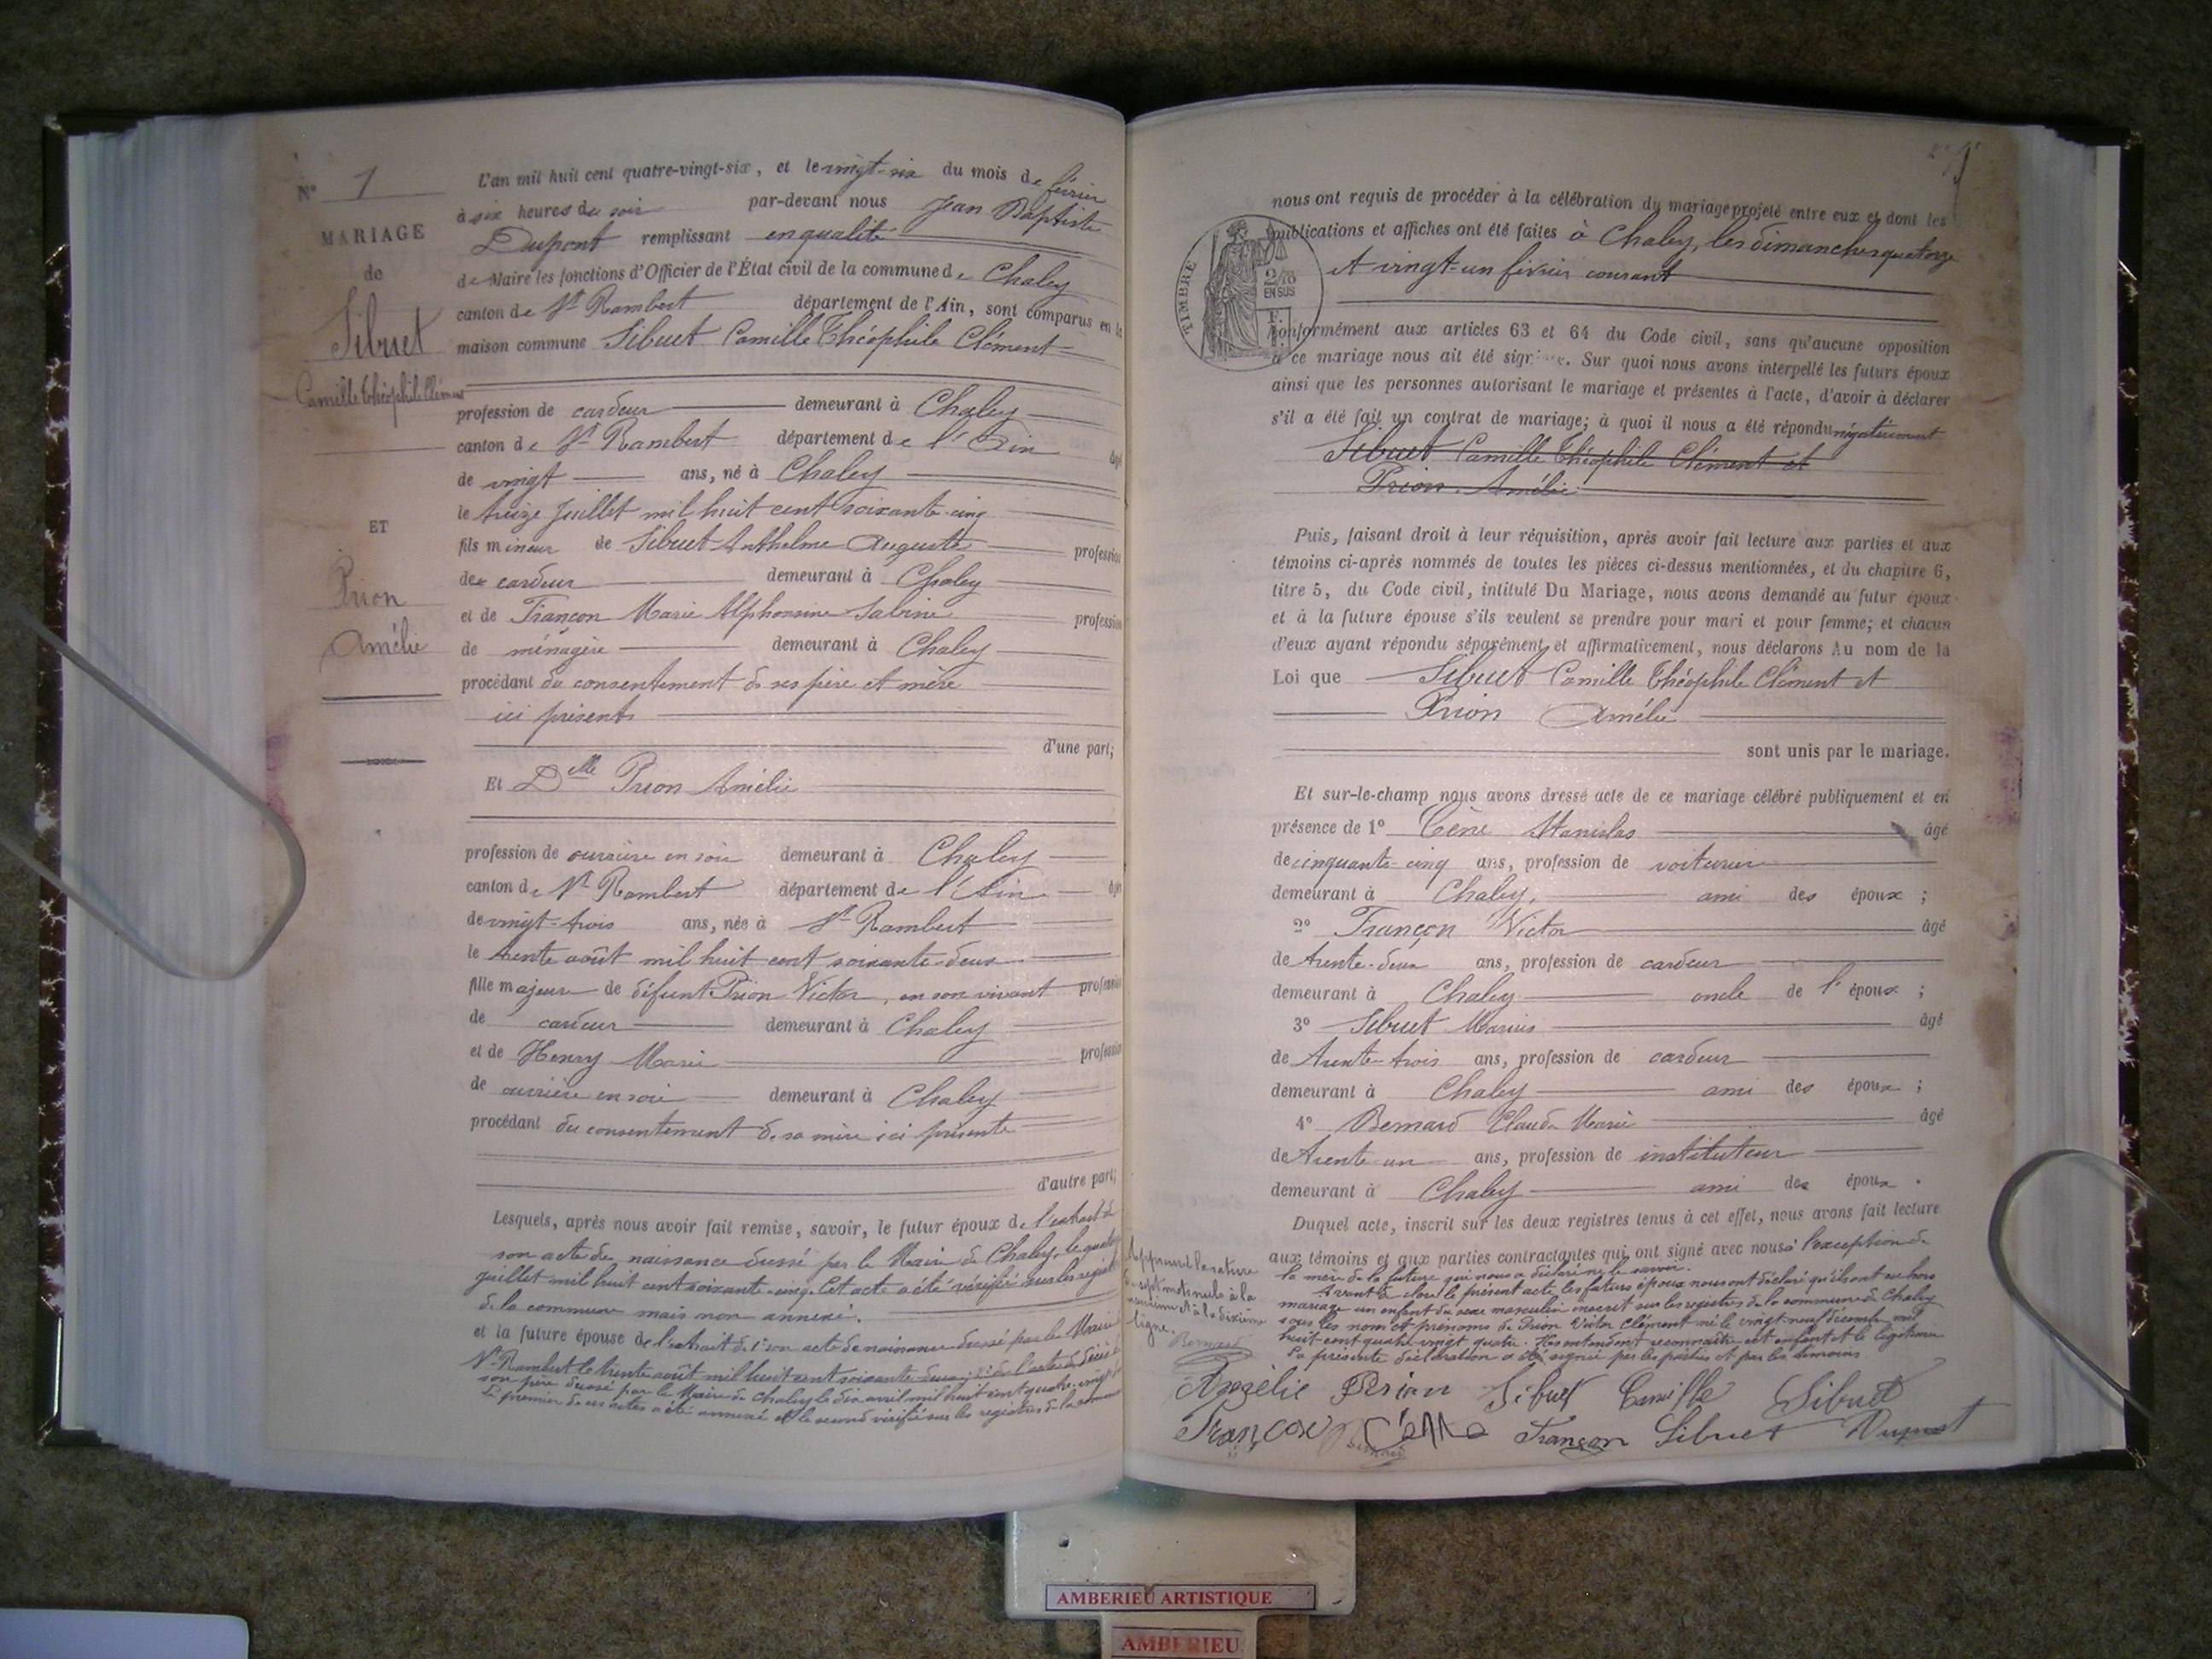 N° 1
MARIAGE
de
Sibuet
Camille Théophile Clément
ET
Prion
Amélie
L'an mil huit cent quatre-vingt-six, et le vingt-six du mois de février
à six heures du soir par-devant nous Jean Baptiste
Dupont remplissant en qualité
de Maire les fonctions d'Officier de l'État civil de la commune de Chaley
canton de St Rambert département de l'Ain, sont comparus en la
maison commune Sibuet Camille Théophile Clément
profession de cardeur demeurant à Chaley
canton de St Rambert département de l'Ain âgé
de vingt ans, né à Chaley
le treize Juillet mil huit cent soixante-cinq
fils mineur de Sibuet Anthelme Auguste profession
de cardeur demeurant à Chaley
et de Françon Marie Alphonsine Sabine profession
de ménagère demeurant à Chaley
procédant du consentement de ses père et mère
ici présents
d'une part;
Et Delle Prion Amélie
profession de ouvrière en soie demeurant à Chaley
canton de St Rambert département de l'Ain âgée
de vingt-trois ans, née à St Rambert
le trente août mil huit cent soixante-deux
fille majeure de défunt Prion Victor, en son vivant profession
de cardeur demeurant à Chaley
et de Henry Marie profession
de ouvrière en soie demeurant à Chaley
procédant du consentement de sa mère ici présente
d'autre part;
Lesquels, après nous avoir fait remise, savoir, le futur époux de l'extrait de
son acte de naissance dressé par le Maire de Chaley, le
juillet mil huit cent soixante-cinq. Cet acte a été vérifié sur les
de la commune mais non annexé.
et la future épouse de l'extrait de 1° son acte de naissance dressé par le Maire
St Rambert le trente août mil huit cent soixante-deux; 2° de l'acte de décès de
son père dressé par le Maire de Chaley le dix avril mil huit cent quatre-vingt
Le premier de ces actes a été annexé et le second vérifié sur les registres de la
nous ont requis de procéder à la célébration du mariage projeté entre eux et dont les
publications et affiches ont été faites à Chaley, les dimanches quatorze
et vingt-un février courant
TIMBRE
2/10
EN SUS
conformément aux articles 63 et 64 du Code civil, sans qu'aucune opposition
à ce mariage nous ait été signifiée. Sur quoi nous avons interpellé les futurs époux
ainsi que les personnes autorisant le mariage et présentes à l'acte, d'avoir à déclarer
s'il a été fait un contrat de mariage; à quoi il nous a été répondu négativement
Sibuet Camille Théophile Clément et
Prion Amélie
Puis, faisant droit à leur réquisition, après avoir fait lecture aux parties et aux
témoins ci-après nommés de toutes les pièces ci-dessus mentionnées, et du chapitre 6,
titre 5, du Code civil, intitulé Du Mariage, nous avons demandé au futur époux
et à la future épouse s'ils veulent se prendre pour mari et pour femme; et chacun
d'eux ayant répondu séparément et affirmativement, nous déclarons Au nom de la
Loi que Sibuet Camille Théophile Clément et
Prion Amélie
sont unis par le mariage.
Et sur-le-champ nous avons dressé acte de ce mariage célébré publiquement et en
présence de 1° Cène Stanislas âgé
de cinquante-cinq ans, profession de voiturier
demeurant à Chaley, ami des époux ;
2° Françon Victor âgé
de trente-deux ans, profession de cardeur
demeurant à Chaley oncle de l'époux ;
3° Sibuet Marius âgé
de trente-trois ans, profession de cardeur
demeurant à Chaley ami des époux ;
4° Bernard Claude Marie âgé
de trente un ans, profession de instituteur
demeurant à Chaley ami des époux .
Duquel acte, inscrit sur les deux registres tenus à cet effet, nous avons fait lecture
aux témoins et aux parties contractantes qui ont signé avec nous à l'exception de
la mère de la future qui nous a déclaré ne le savoir.
Avant de clore le présent acte, les futurs époux nous ont déclaré qu'ils ont eu hors
mariage un enfant du sexe masculin inscrit sur les registres de la commune de Chaley
sous les nom et prénoms de Prion Victor Clément né le vingt-neuf décembre mil
huit-cent quatre vingt quatre. Ils entendent reconnaître cet enfant et le légitimer
La présente déclaration a été signée par les parties et par les témoins
Approuvé la rature
de sept mots nuls à la
neuvième et à la dixième
ligne.
Bernard
Amélie Prion Sibuet Camille Sibuet
Françon Bernard Cène Françon Sibuet Dupont
AMBERIEU ARTISTIQUE
AMBERIEU